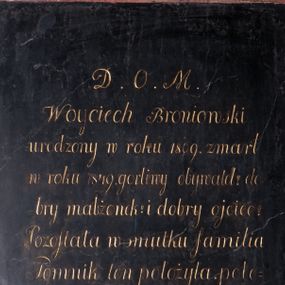 D. O. M.
Woyciech Broniowski
urodzony w roku 1809. zmarł
w roku 1849. gorliwy obywatel: do
bry małżonek: i dobry ojciec:
Pozostała w smutku familia
Pomnik ten położyła. pole=